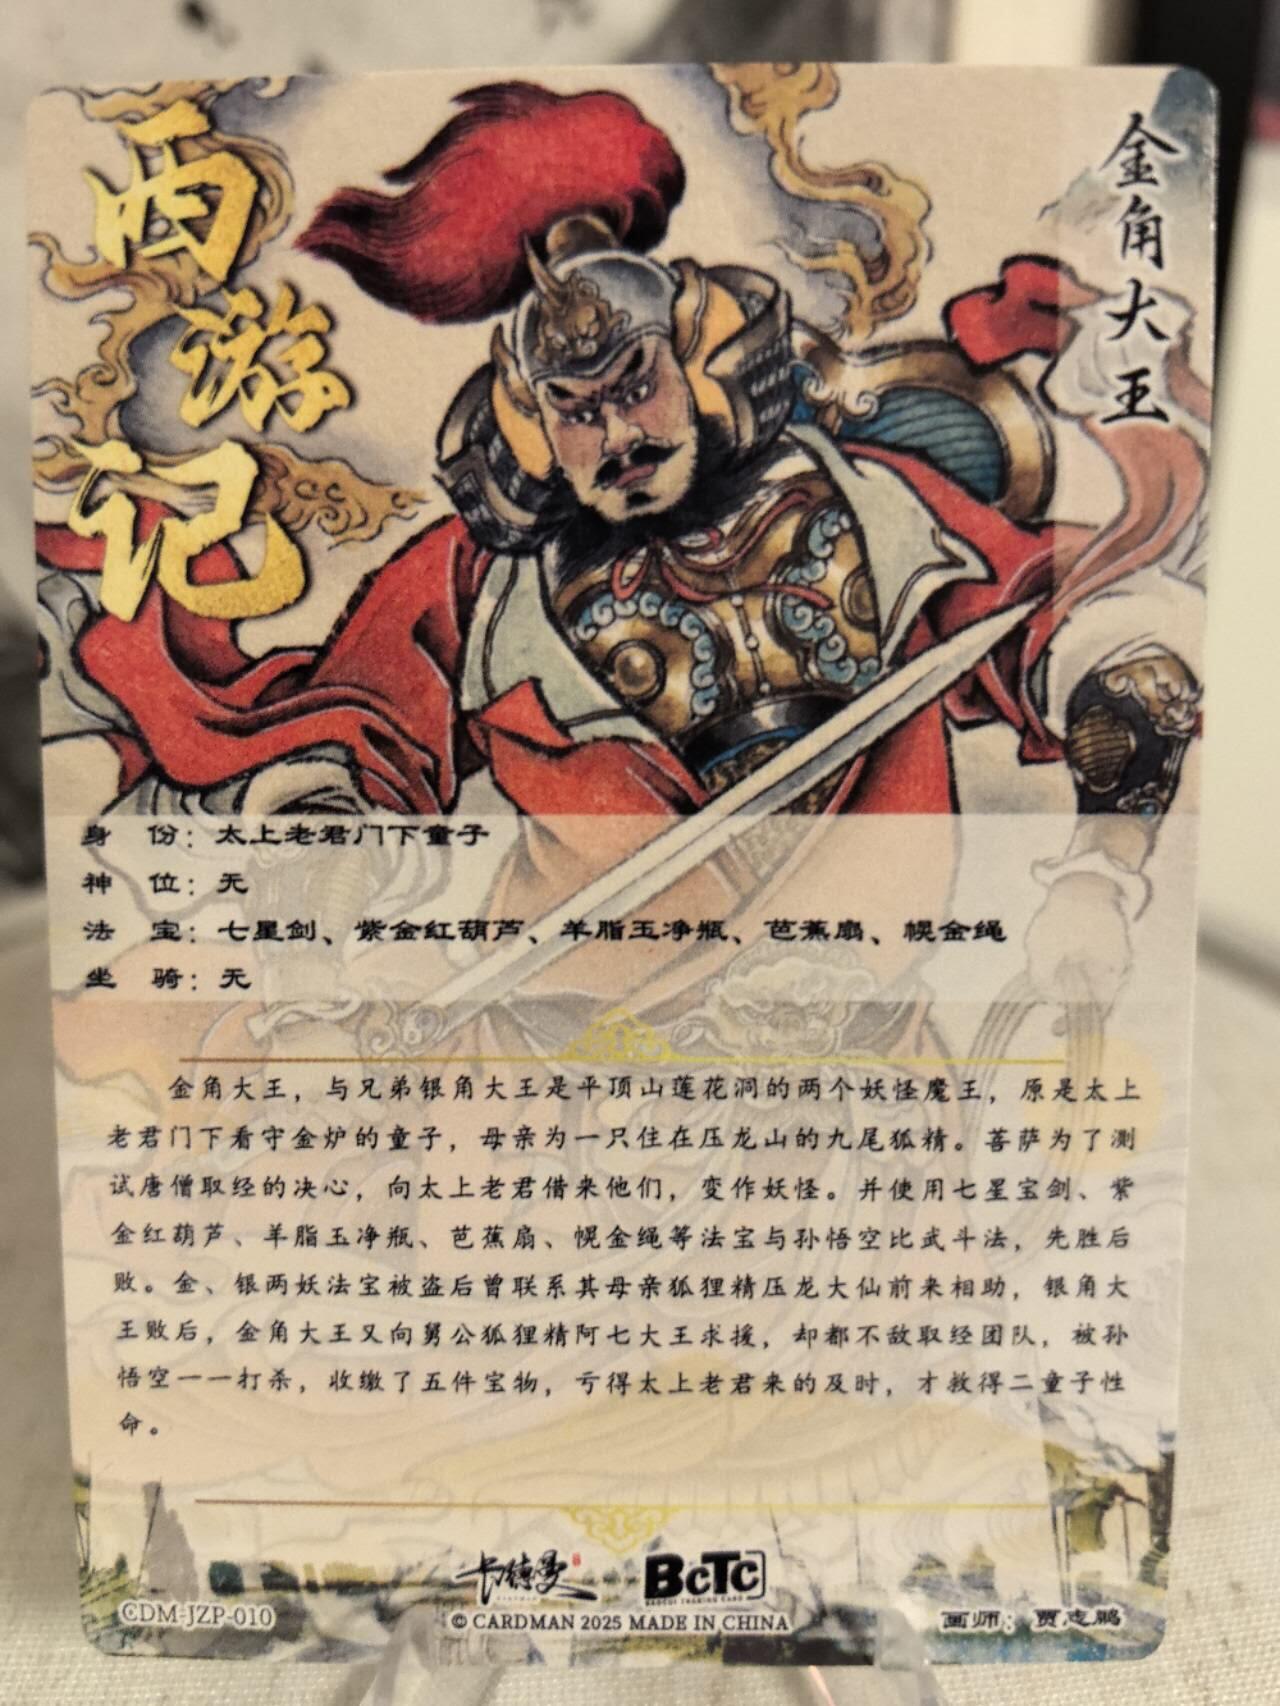 西游记
金角大王
身　份：太上老君门下童子
神　位：无
法　宝：七星剑、紫金红葫芦、羊脂玉净瓶、芭蕉扇、幌金绳
坐　骑：无
金角大王，与兄弟银角大王是平顶山莲花洞的两个妖怪魔王，原是太上
老君门下看守金炉的童子，母亲为一只住在压龙山的九尾狐精。菩萨为了测
试唐僧取经的决心，向太上老君借来他们，变作妖怪。并使用七星宝剑、紫
金红葫芦、羊脂玉净瓶、芭蕉扇、幌金绳等法宝与孙悟空比武斗法，先胜后
败。金、银两妖法宝被盗后曾联系其母亲狐狸精压龙大仙前来相助，银角大
王败后，金角大王又向舅公狐狸精阿七大王求援，却都不敌取经团队，被孙
悟空一一打杀，收缴了五件宝物，亏得太上老君来的及时，才救得二童子性
命。
卡德曼
BCTC
CDM-JZP-010
© CARDMAN 2025 MADE IN CHINA
画师：贾志鹏